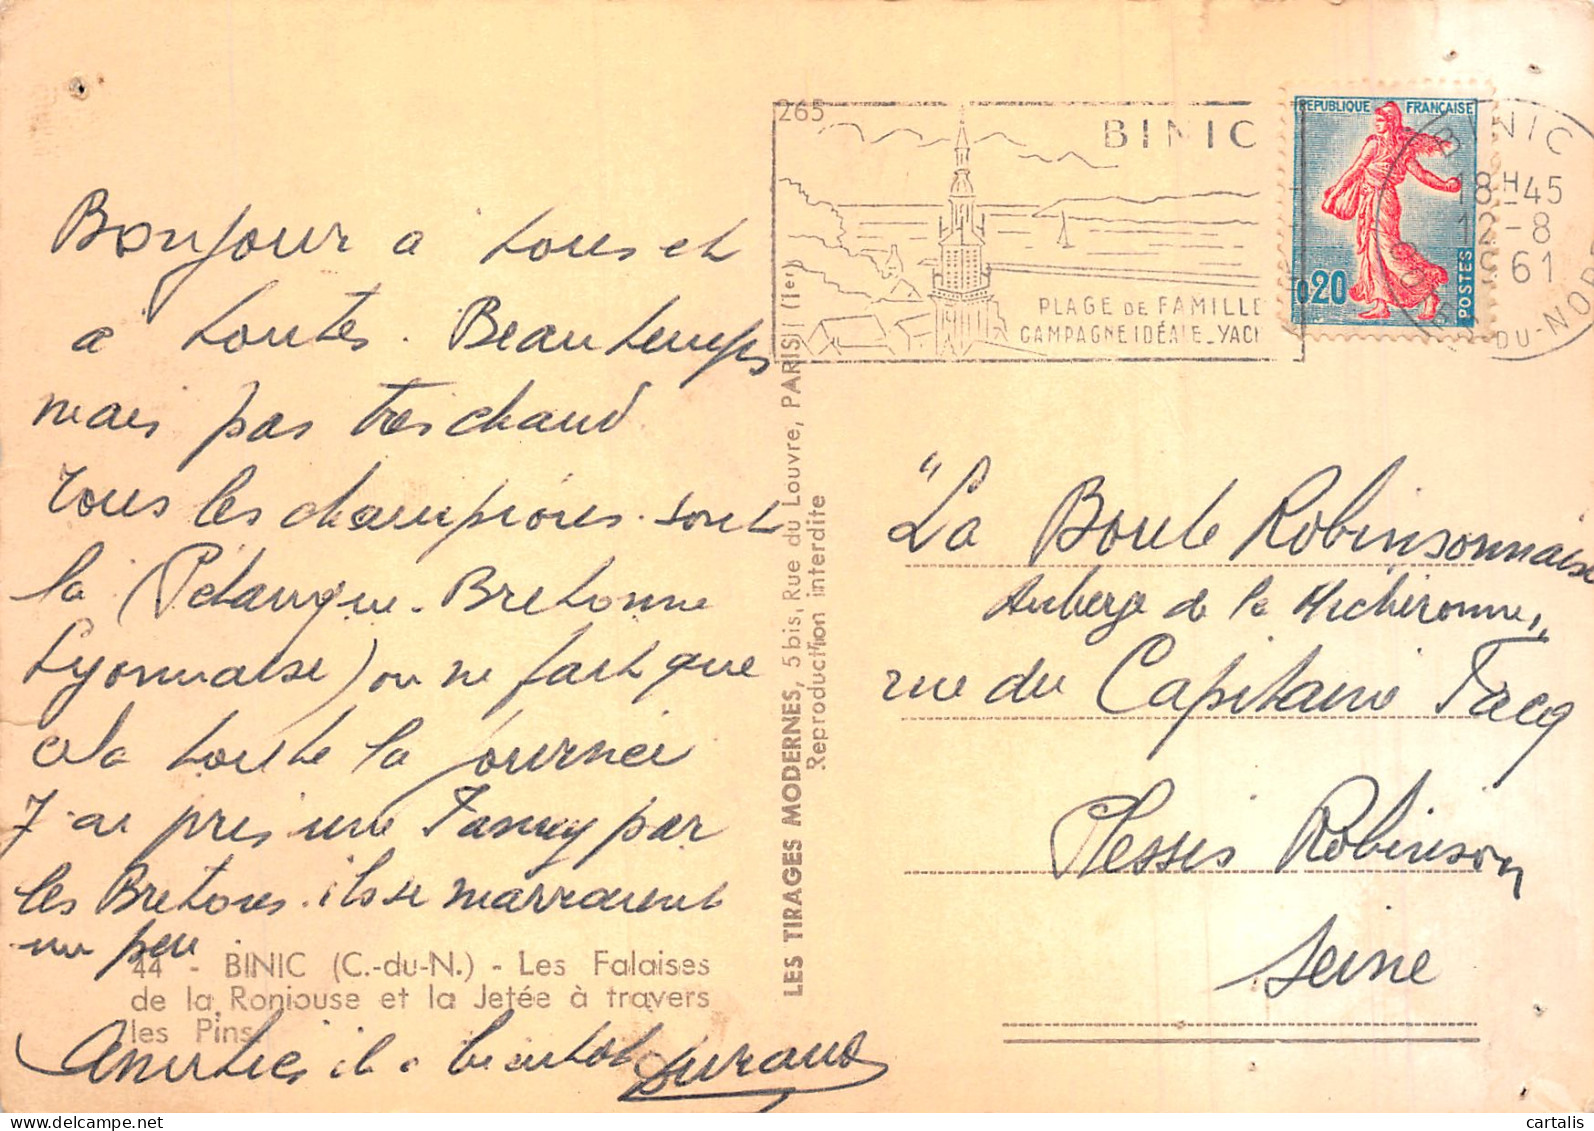 Bonjour a tous et
a toutes. Beau temps
mais pas tres chaud
Tous les champions sont
la (Petanque - Bretonne
Lyonnaise) on ne fait que
cela toute la journée
J'ai pris une Fanny par
les Bretons. ils se marraient
un peu
Amitiés et a bientot Durand
44 - BINIC (C.-du-N.) - Les Falaises
de la Ronjouse et la Jetée à travers
les Pins
LES TIRAGES MODERNES, 5 bis, Rue du Louvre, PARIS (1er)
Reproduction interdite
265
BINIC
PLAGE DE FAMILLE
CAMPAGNE IDÉALE_YACH
REPUBLIQUE FRANÇAISE
0,20
POSTES
BINIC
18H45
12-8
1961
CÔTES-DU-NORD
"La Boule Robinsonnaise
Auberge de la Micheronne"
rue du Capitaine Facq
Plessis Robinson
Seine
cartalis
www.delcampe.net